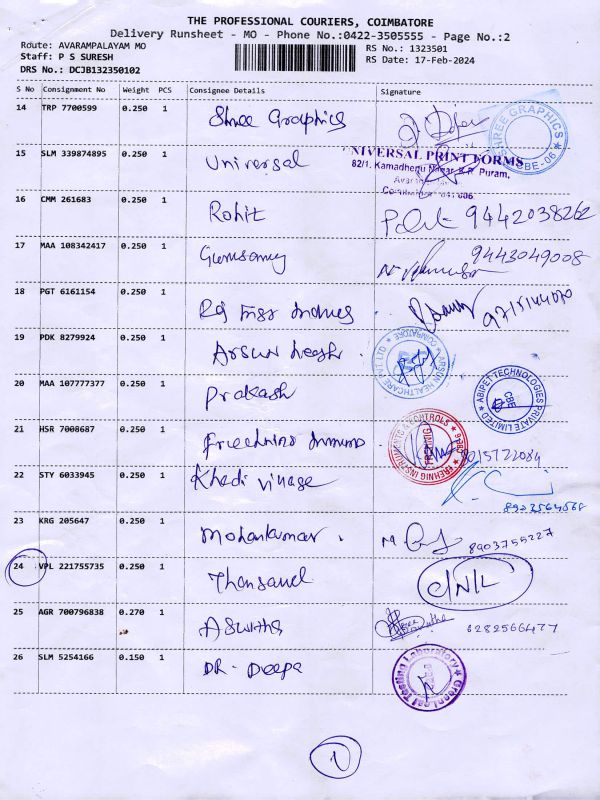 THE PROFESSIONAL COURIERS, COIMBATORE
Delivery Runsheet - MO - Phone No.:0422-3505555 - Page No.:2
Route: AVARAMPALAYAM MO
RS No.: 1323501
Staff: P S SURESH
RS Date: 17-Feb-2024
DRS No.: DCJB132350102
S No Consignment No Weight PCS Consignee Details Signature
14 TRP 7700599 0.250 1 Shree Graphics
SHREE GRAPHICS
CBE-06
15 SLM 339874895 0.250 1 Universal
NIVERSAL PRINT FORMS
82/1, Kamadhenu Nagar, K.R. Puram,
Coimbatore 641 006
16 CMM 261683 0.250 1 Rohit 9442038262
17 MAA 108342417 0.250 1 Gurusamy 9443049008
18 PGT 6161154 0.250 1 9715144070
19 PDK 8279924 0.250 1
ARSON HEALTHCARE PVT LTD
COIMBATORE
20 MAA 107777377 0.250 1 Prakash
ABIPET TECHNOLOGIES PRIVATE LIMITED
CBE
21 HSR 7008687 0.250 1 8015722084
FREHNING INSTRUMENTS & CONTROLS
22 STY 6033945 0.250 1 Khadi Village
8902564568
23 KRG 205647 0.250 1 Mohankumar . 8903755227
24 VPL 221755735 0.250 1 C/N/L
25 AGR 700796838 0.270 1 Aswitha 6282566477
26 SLM 5254166 0.150 1 DR. Deepa
GreenLeaf Testing Laboratory
1